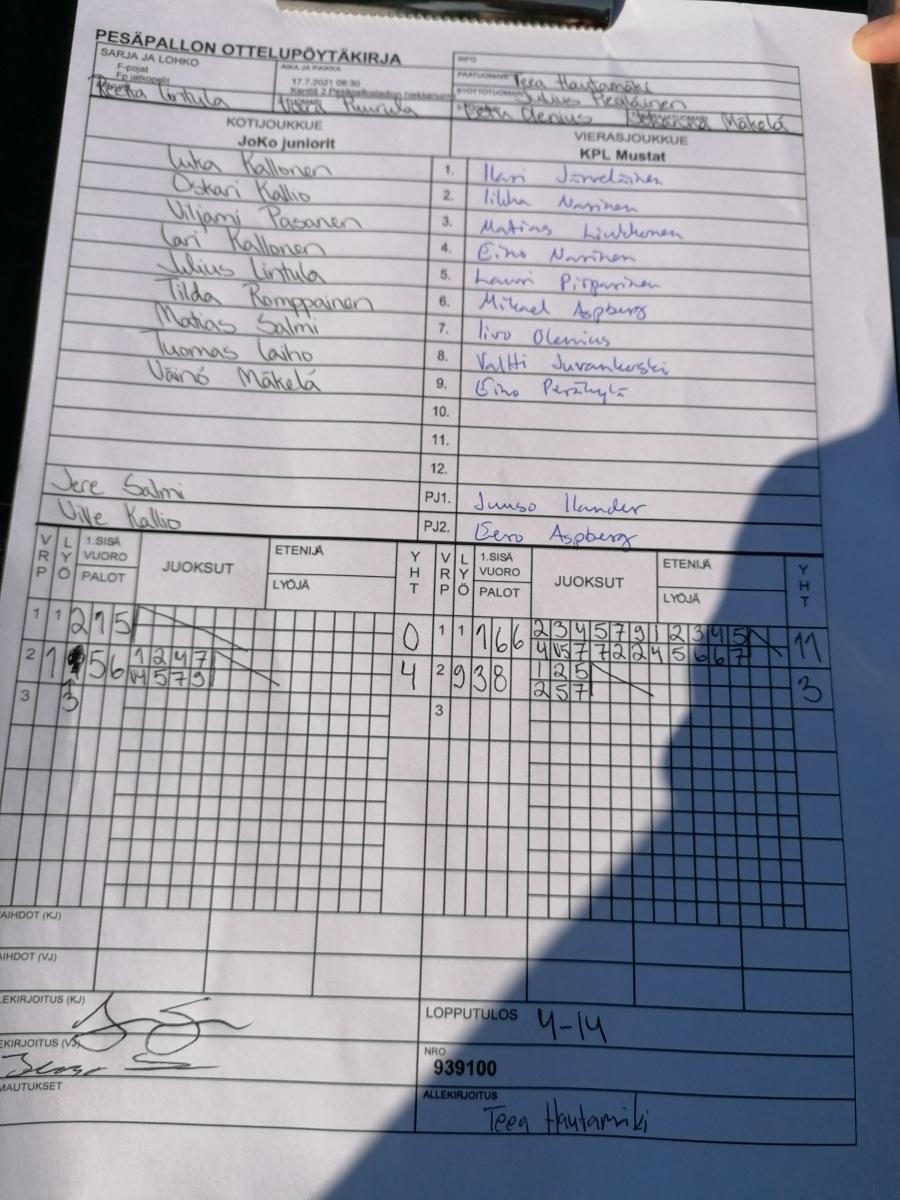 PESÄPALLON OTTELUPÖYTÄKIRJA
SARJA JA LOHKO
F-pojat
Fp jatkopelit
AIKA JA PAIKKA
17.7.2021 08:30
INFO
PÄÄTUOMARI Teea Hautamäki
SYÖTTÖTUOMARI Julius Pealainen
Reeta Lintula
Mäkelä
KOTIJOUKKUE
JoKo juniorit
VIERASJOUKKUE
KPL Mustat
Luka Kallonen 1. Ilari Järveläinen
Oskari Kallio 2. Iikka Narinen
Viljami Pasanen 3. Matias Liukkonen
Lari Kallonen 4. Eino Narinen
Julius Lintula 5. Lauri Pirparinen
Tilda Romppainen 6. Mikael Aspberg
Matias Salmi 7. Iivo Olenius
Tuomas Laiho 8. Valtti Juvankoski
Väinö Mäkelä 9. Eino Perähylä
10.
11.
12.
Jere Salmi PJ1. Juuso Ilander
Ville Kallio PJ2. Eero Aspberg
VRP LYÖ 1.SISÄ VUORO PALOT JUOKSUT ETENIJÄ LYÖJÄ YHT VRP LYÖ 1.SISÄ VUORO PALOT JUOKSUT ETENIJÄ LYÖJÄ YHT
1 1 2 7 5 0 1 1 7 6 6 2 3 4 5 7 9 1 2 3 4 5 11
4 V5 7 7 2 2 4 5 6 6 7
2 1 5 6 1 2 4 7 4 2 9 3 8 1 2 5 3
V4 5 7 9 2 5 7
3 3 3
LOPPUTULOS 4-14
NRO
939100
ALLEKIRJOITUS
Teea Hautamäki